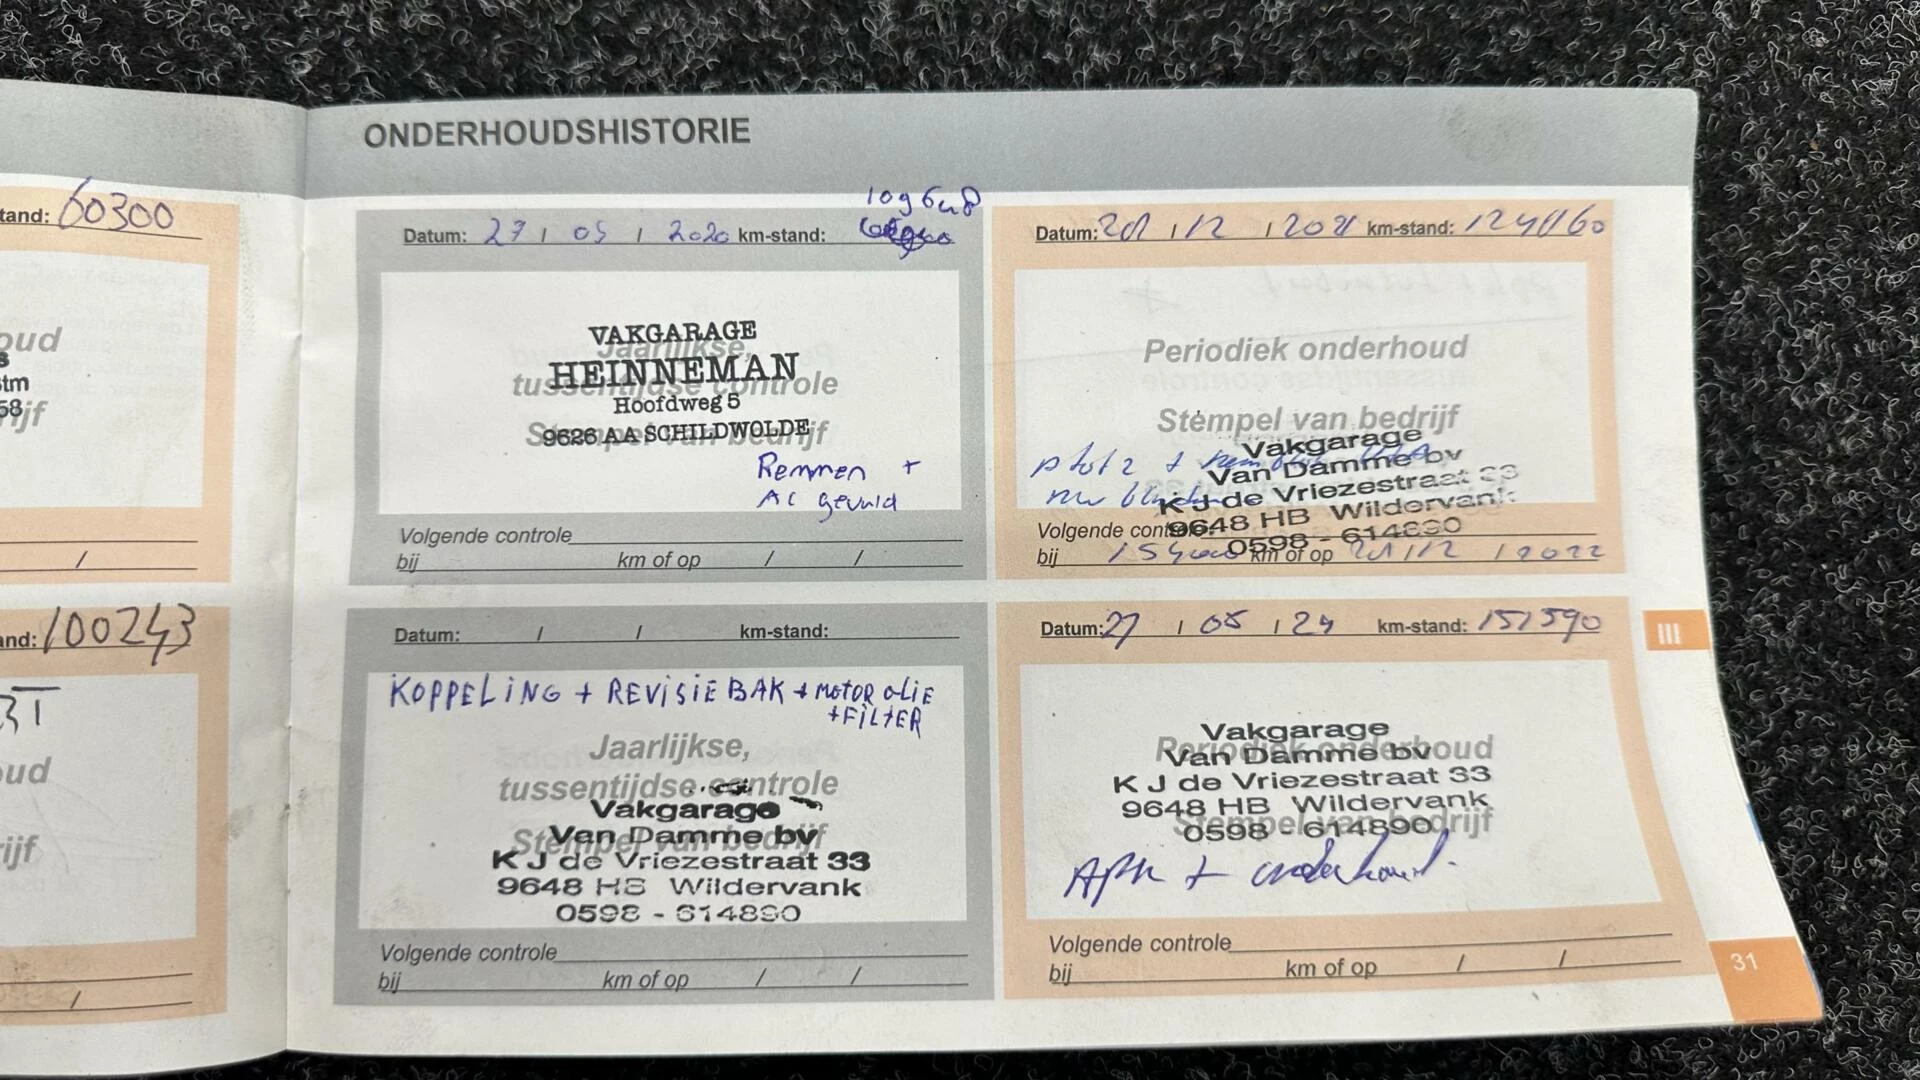 ONDERHOUDSHISTORIE
tand: 60300
oud
s
stm
58
ijf
/
and: 100243
BT
oud
ijf
/
Datum: 27 / 05 / 2020 km-stand: 109648
VAKGARAGE
Jaarlijkse,
HEINNEMAN
tussentijdse controle
Hoofdweg 5
9626 AA SCHILDWOLDE
Stempel van bedrijf
Remmen +
AC gevuld
Volgende controle
bij km of op / /
Datum: / 12 / 2021 km-stand: 124860
Periodiek onderhoud
Stempel van bedrijf
Vakgarage
Van Damme bv
K J de Vriezestraat 33
9648 HB Wildervank
0598 - 614890
Volgende controle
bij 154000 km of op / 12 / 2022
Datum: / / km-stand:
KOPPELING + REVISIE BAK + MOTOR OLIE
+ FILTER
Jaarlijkse,
tussentijdse controle
Vakgarage
Stempel van bedrijf
Van Damme bv
K J de Vriezestraat 33
9648 HB Wildervank
0598 - 614890
Volgende controle
bij km of op / /
Datum: 27 / 05 / 24 km-stand: 151590
Vakgarage
Periodiek onderhoud
Van Damme bv
K J de Vriezestraat 33
9648 HB Wildervank
Stempel van bedrijf
0598 - 614890
APK + onderhoud.
Volgende controle
bij km of op / /
III
31